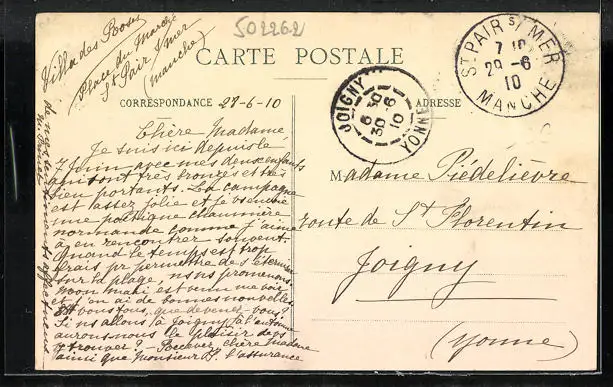 502262
Villa des Roses
Place du Marché
St Pair s/mer
(Manche)
CARTE POSTALE
ST PAIR S/ MER
7
29-6
10
MANCHE
JOIGNY
6 30
30-6
10
YONNE
CORRESPONDANCE 27-6-10
ADRESSE
Chère Madame,
Je suis ici depuis le
7 Juin avec mes deux enfants
qui sont très bronzés et très
bien portants. La campagne
est assez jolie et je vs envoie
une poétique chaumière
normande comme j'aime
à en rencontrer souvent.
Quand le temps est trop
frais pr permettre de s'éterniser
sur la plage, ns ns promenons.
Mon mari est venu me voir
et j'en ai de bonnes nouvelles.
Et vous tous, que devenez-vous?
Si ns allons à Joigny à l'automne
aurons-nous le plaisir de vs
retrouver? - Recevez, chère Madame
ainsi que Monsieur P. l'assurance
Madame Piédelièvre
route de St Florentin
Joigny
(Yonne)